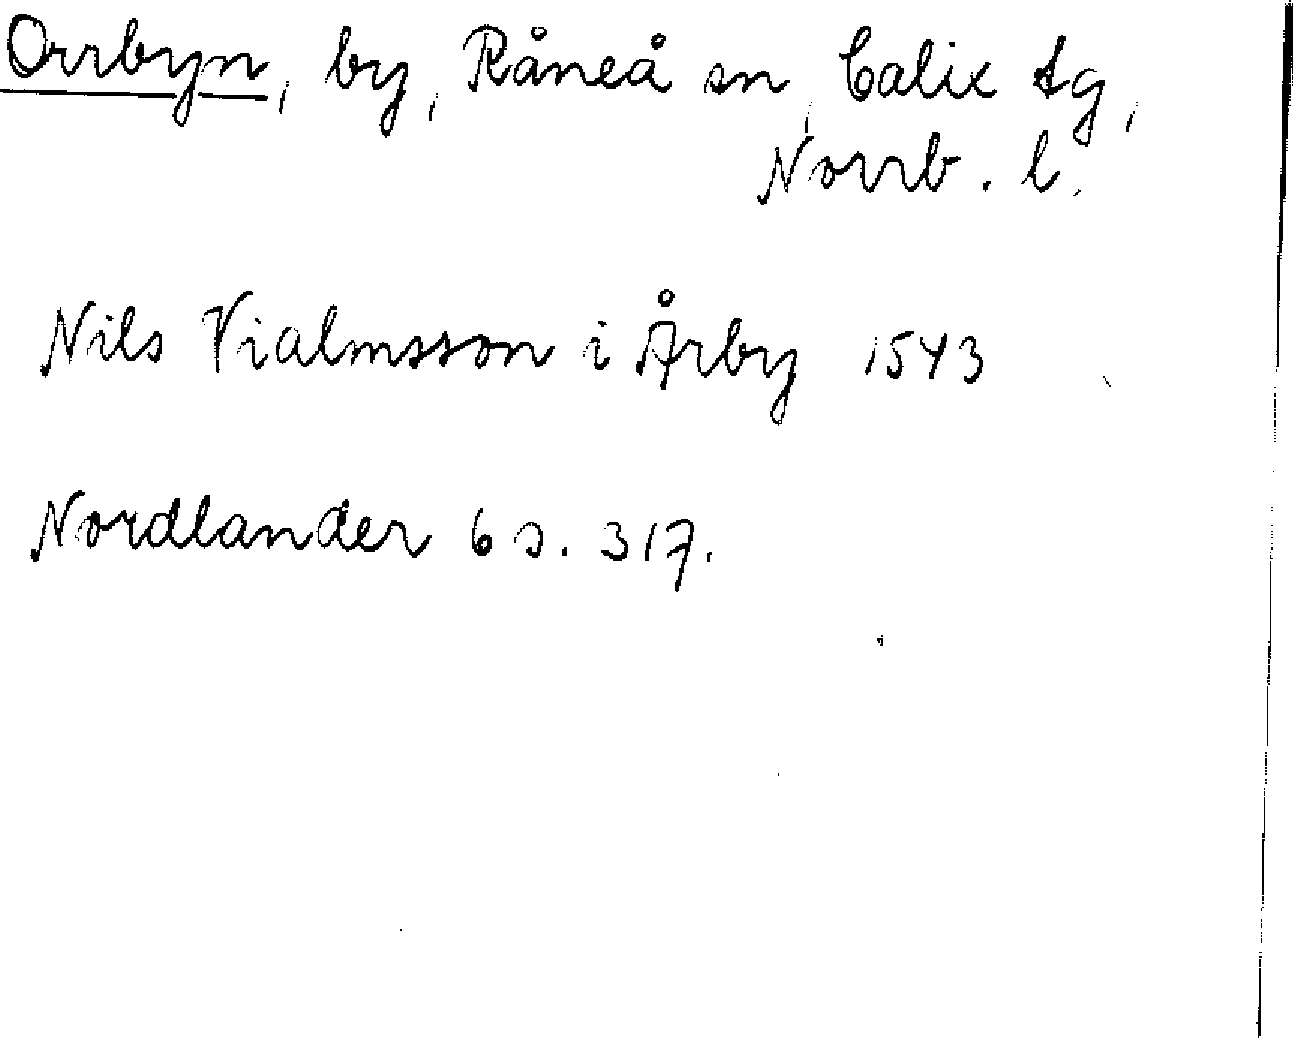 Orrbyn, by, Råneå sn, Calix tg,
Norrb. l.
Nils Vialmsson i Årby 1543
Nordlander 6 s. 317.